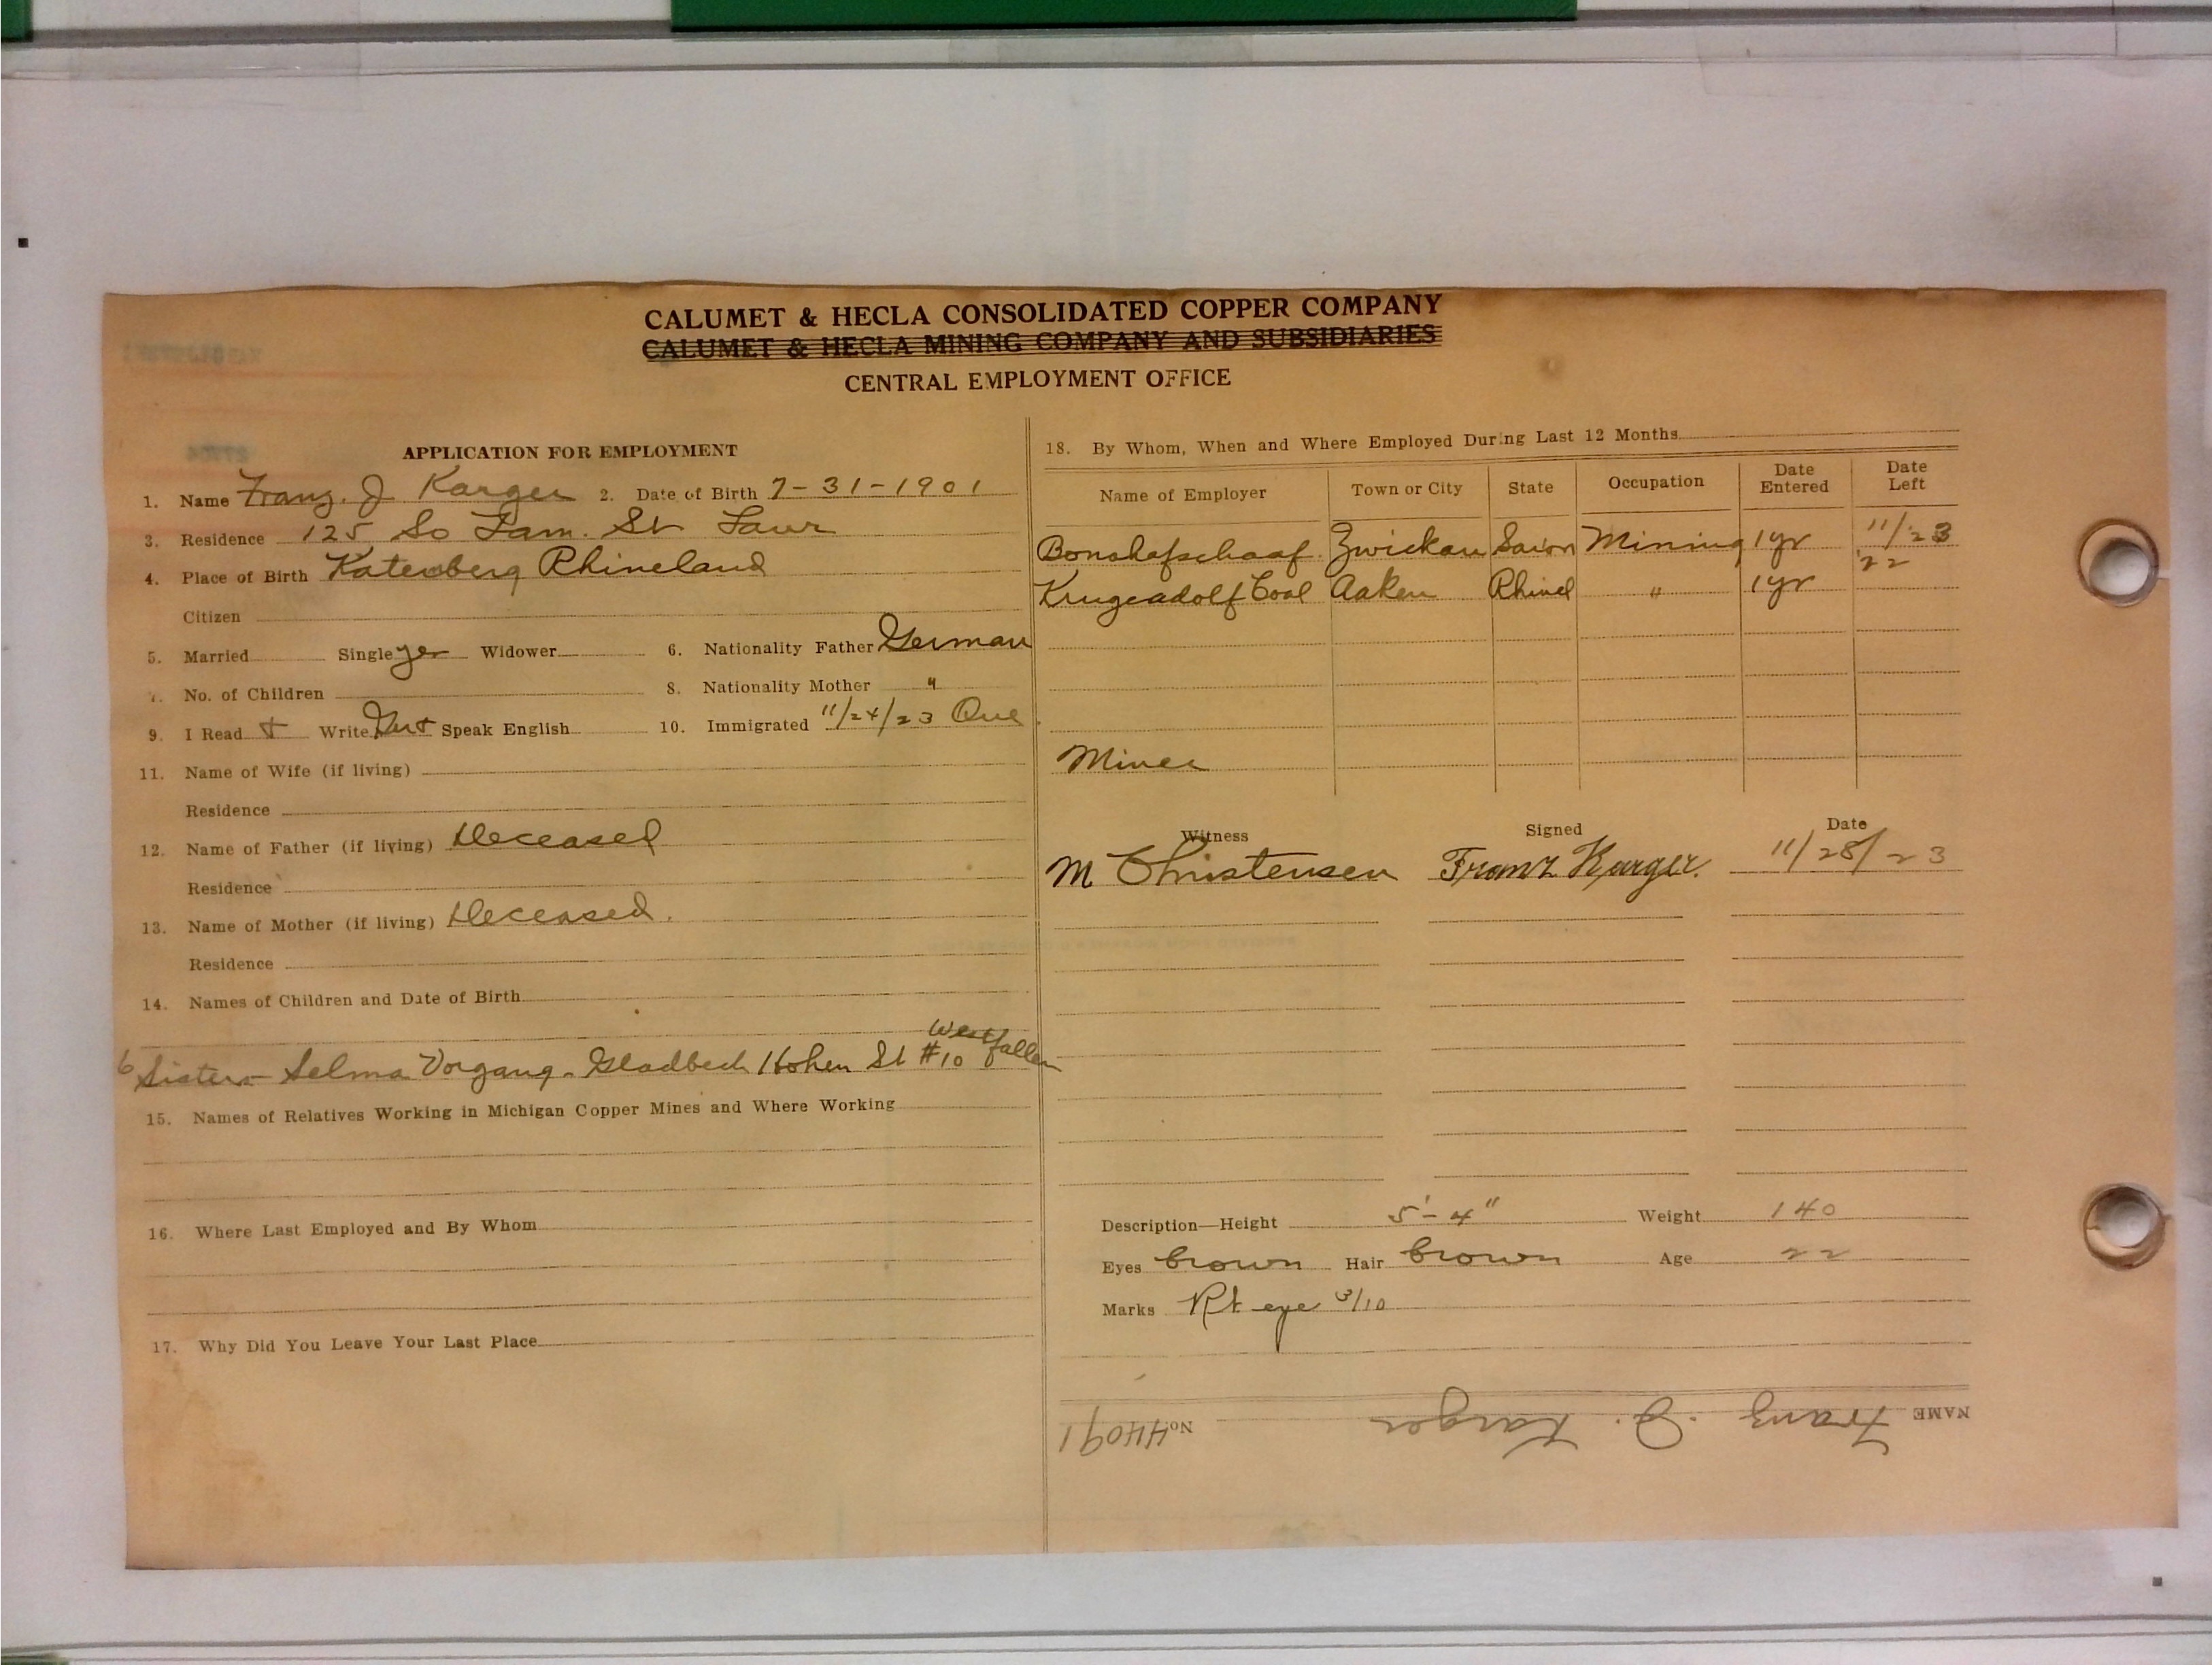 CALUMET & HECLA CONSOLIDATED COPPER COMPANY
CALUMET & HECLA MINING COMPANY AND SUBSIDIARIES
CENTRAL EMPLOYMENT OFFICE
APPLICATION FOR EMPLOYMENT
1. Name Franz. J Karger 2. Date of Birth 7-31-1901
3. Residence 125 So Lam. St Laur
4. Place of Birth Katernberg Rhineland
Citizen
5. Married Single yes Widower 6. Nationality Father German
7. No. of Children 8. Nationality Mother "
9. I Read & Write Speak English 10. Immigrated 11/24/23 Que
11. Name of Wife (if living)
Residence
12. Name of Father (if living) Deceased
Residence
13. Name of Mother (if living) Deceased.
Residence
14. Names of Children and Date of Birth
6 Sister - Selma Vorgang - Gladbech Hohen St #10 Westfallen
15. Names of Relatives Working in Michigan Copper Mines and Where Working
16. Where Last Employed and By Whom
17. Why Did You Leave Your Last Place
18. By Whom, When and Where Employed During Last 12 Months
Name of Employer Town or City State Occupation Date Entered Date Left
Zwickau Mining 1yr 11/23
Coal Aaken Rhinel " 1yr 22
Miner
Witness Signed Date
M Christensen Franz Karger. 11/28/23
Description—Height 5'-4" Weight 140
Eyes brown Hair brown Age 22
Marks Rt eye 3/10
NAME Franz J. Karger No 44091